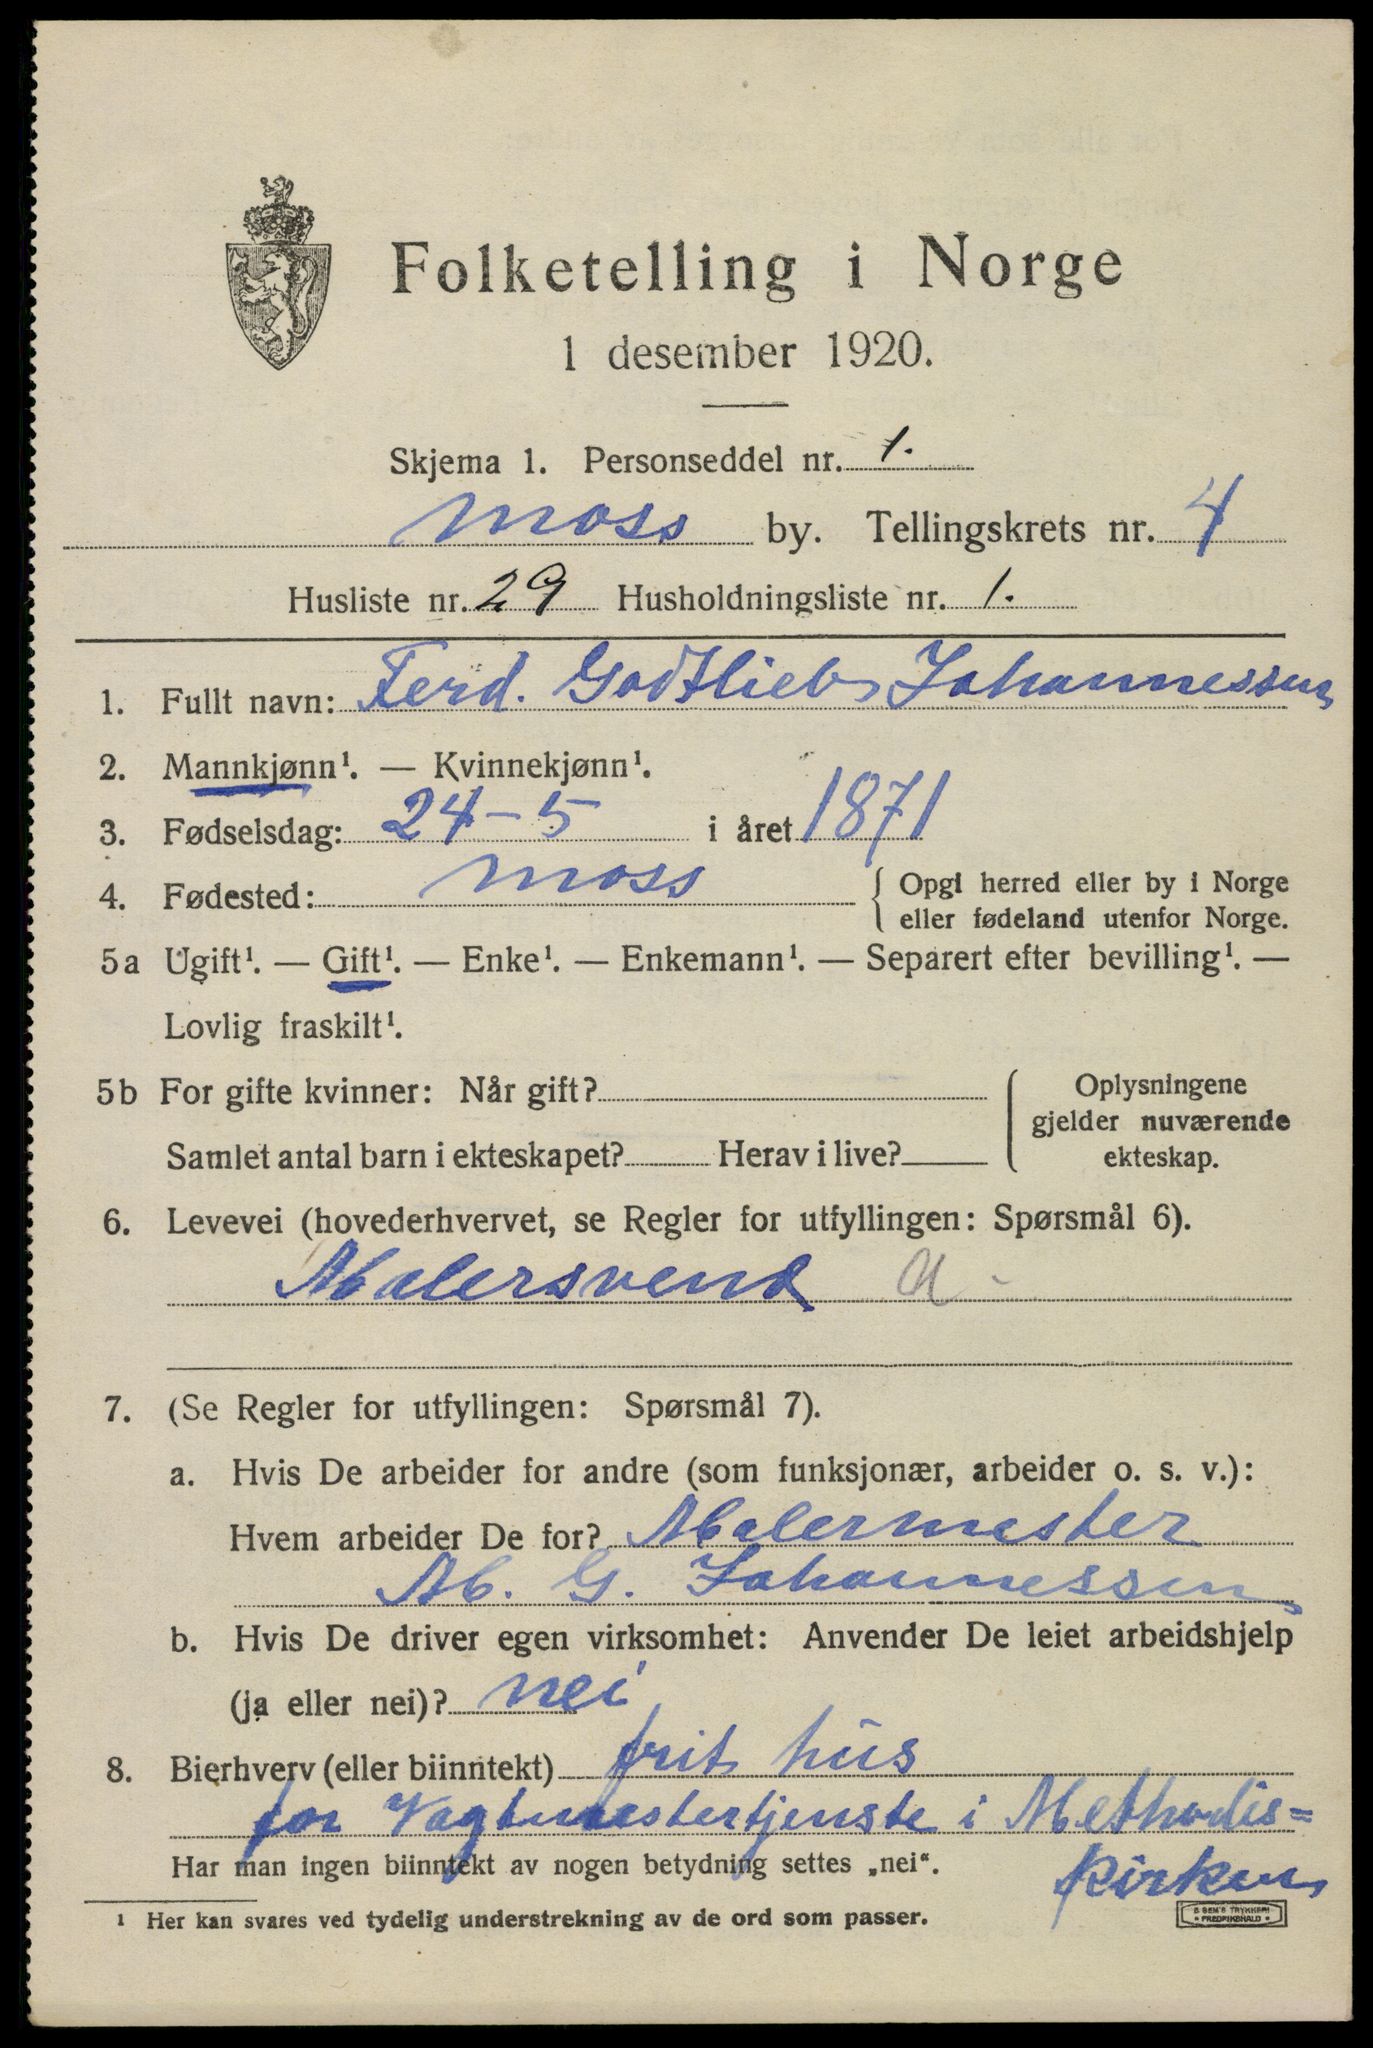 Folketelling i Norge
1 desember 1920.
Skjema 1. Personseddel nr. 1.
Moss by. Tellingskrets nr. 4
Husliste nr. 29 Husholdningsliste nr. 1.
1. Fullt navn: Ferd. Godtlieb Johannessen
2. Mannkjønn¹. — Kvinnekjønn¹.
3. Fødselsdag: 24-5 i året 1871
4. Fødested: Moss { Opgi herred eller by i Norge
eller fødeland utenfor Norge.
5a Ugift¹. — Gift¹. — Enke¹. — Enkemann¹. — Separert efter bevilling¹. —
Lovlig fraskilt¹.
5b For gifte kvinner: Når gift?
Samlet antal barn i ekteskapet? Herav i live?
Oplysningene
gjelder nuværende
ekteskap.
6. Levevei (hovederhvervet, se Regler for utfyllingen: Spørsmål 6).
Malersvend a -
7. (Se Regler for utfyllingen: Spørsmål 7).
a. Hvis De arbeider for andre (som funksjonær, arbeider o. s. v.):
Hvem arbeider De for? Malermester
M. G. Johannessen
b. Hvis De driver egen virksomhet: Anvender De leiet arbeidshjelp
(ja eller nei)? nei
8. Bierhverv (eller biinntekt) frit hus
for Vagtmestertjenste i Methodis=
kirken
Har man ingen biinntekt av nogen betydning settes „nei".
¹ Her kan svares ved tydelig understrekning av de ord som passer.
E SEM'S TRYKKERI
FREDRIKSHALD